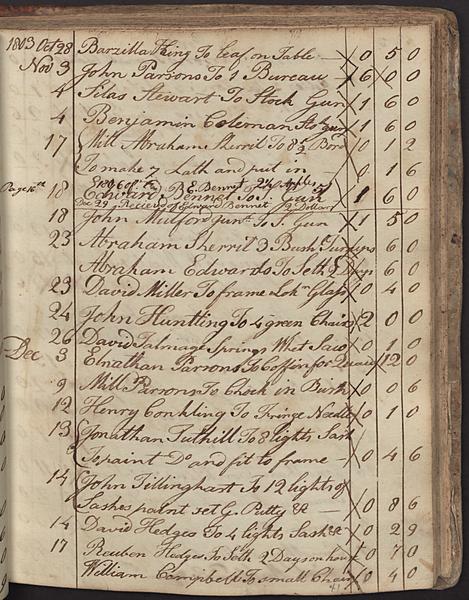 1803 Oct 28 Barzilla King To leaf on Table — 0 5 0
Nov 3 John Parsons To 1 Bureau — 6 0 0
4 Silas Stewart To Stock Gun 1 6 0
4 Benjamin Coleman Sto Gun 1 6 0
17 Will Abraham Sherril To 8 0 1 2
To make 7 Lath and put in — 0 1 6
18 Edward Bennet To S. Gun 1 6 0
Dec 29 Received of Edward Bennet Dollars
18 John Mulford Junr To S. Gun 1 5 0
23 Abraham Sherril 3 Bush Turnips 6 0
Abraham Edwards To Seth 2 Days 6 0
23 David Miller To frame Lok Glass 0 4 0
24 John Huntting To 4 green Chairs 2 0 0
26 David Talmage Springs Whet Saw 0 1 0
Dec 3 Elnathan Parsons To Coffin for 1 2 0
9 Mill Parsons To Chock in Bush 0 0 6
12 Henry Conkling To Fringe Needle 0 1 0
13 Jonathan Tuthill To 8 lights Sash
To paint Do and fit to frame — 0 4 6
14 John Tillinghast To 12 lights of
Sashes paint set G. Putty &c — 0 8 6
14 David Hedges To 4 lights Sash &c 0 2 9
17 Reuben Hedges To Seth 2 Days on house 0 7 0
William Campbell To small Chair 0 4 0